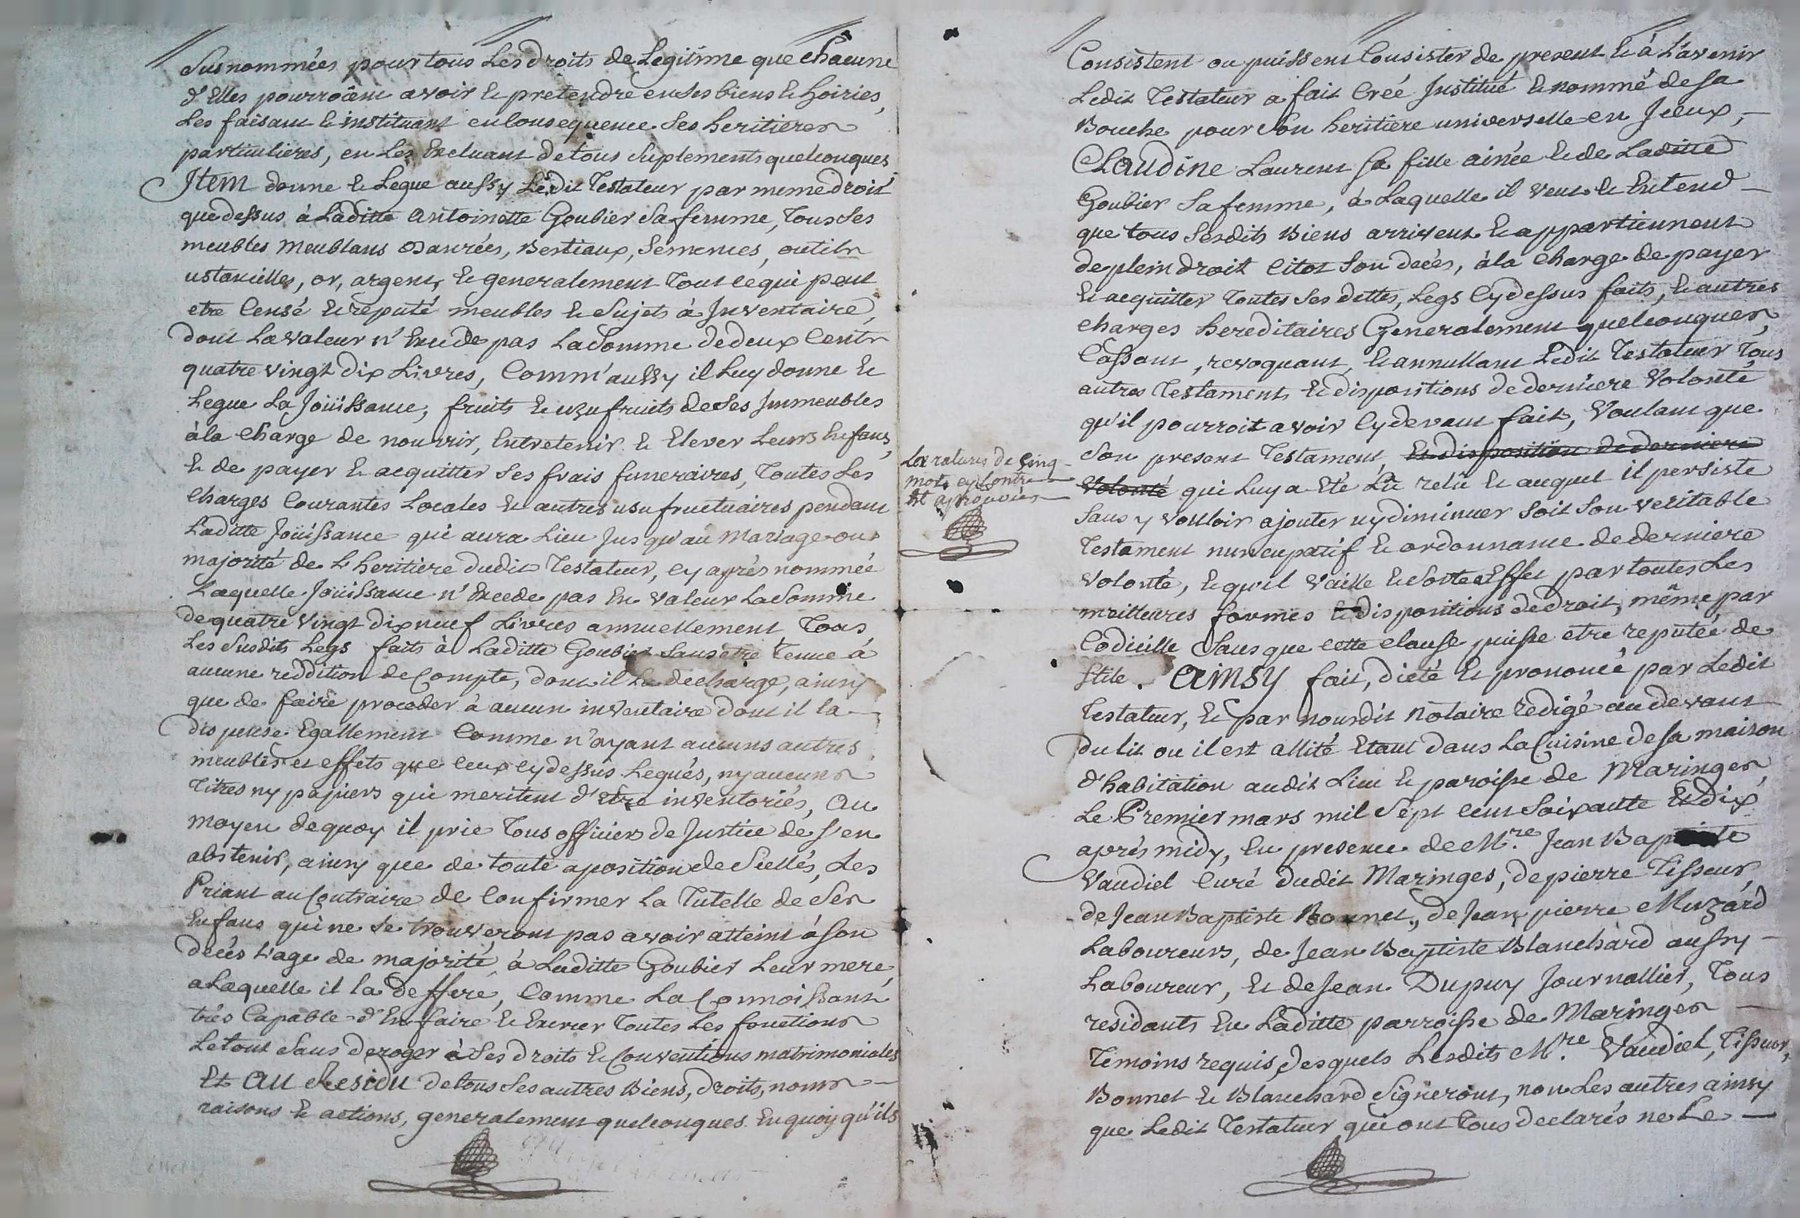 susnommées pour tous les droits de Legitime que chacune
d'Elles pourroient avoir et pretendre en ses biens et hoiries,
Les faisant et instituant en Consequence ses heritieres
particulieres, en Les Excluant de tous suplements quelconques
Item donne et Legue aussy Ledit Testateur par meme droit
que dessus à Laditte antoinette Goubier sa femme, tous ses
meubles meublans danrées, Bestiaux, semences, outils
ustancilles, or, argent, et generalement tout ce qui peut
etre Censé et reputé meubles et sujets à Inventaire,
dont La valeur n'Excede pas La somme de deux Cents
quatre vingt dix Livres, Comm'aussy il Luy donne et
Legue La Joüissance, fruits et usufruits de ses Immeubles
à la charge de nourrir, Entretenir et Elever Leurs Enfans,
et de payer et acquitter ses frais funeraires, toutes Les
charges Courantes Locales et autres usufructuaires pendant
Laditte Joüissance qui aura Lieu Jusqu'au mariage ou
majorité de L'heritière dudit Testateur, cy après nommée
Laquelle Joüissance n'Excede pas en valeur La somme
de quatre vingt dix neuf Livres annuellement tous
Les susdits Legs faits à Laditte Goubier sans etre tenue à
aucune reddition de Compte, dont il La décharge, ainsy
que de faire proceder à aucun inventaire dont il la
dispense Egallement Comme n'ayant aucuns autres
meubles et effets que ceux cy dessus Legués, ny aucuns
titres ny papiers qui meritent d'etre inventoriés, au
moyen de quoy il prie tous officiers de Justice de s'en
abstenir, ainsy que de toute aposition de scellés, Les
Priant au Contraire de Confirmer La Tutelle de ses
Enfans qui ne se trouveront pas avoir atteint à son
decès L'age de majorité, à Laditte Goubier Leur mere,
a Laquelle il la deffere, Comme La Connoissant
très Capable d'En faire et Exercer toutes Les fonctions
Le tout sans deroger à ses droits et Conventions matrimoniales
Et au Residu de tous ses autres Biens, droits, noms
raisons et actions, generalement quelconques En quoy qu'ils
La rature de cinq
mots cy contre
est aprouvée
Consistent ou puissent Consister de present et à L'avenir
Ledit Testateur a fait Créé Institué et nommé de sa
Bouche pour son heritiere universelle en Iceux,
Claudine Laurent sa fille ainée et de Laditte
Goubier sa femme, à Laquelle il veut et Entend
que tous sesdits Biens arrivent et appartiennent
de plein droit Citot son decès, à la charge de payer
et acquitter toutes ses dettes, Legs Cy dessus faits, et autres
charges hereditaires Generalement quelconques,
Cassant, revoquant, et annullant Ledit Testateur tous
autres Testaments et dispositions de derniere volonté
qu'il pourroit avoir Cy devant fait, voulant que
son present Testament et disposition de derniere
volonté qui Luy a été Lû relû et auquel il persiste
sans y vouloir ajouter ny diminuer soit son veritable
Testament nuncupatif et ordonnance de derniere
volonté, et qu'il vaille et sorte Effet par toutes Les
meilleures formes et dispositions de droit, même par
Codicille sans que cette clause puisse etre reputée de
stile. Ainsy fait, dicté et prononcé par Ledit
Testateur, et par nousdit Notaire redigé au devant
du lit ou il est allité Etant dans La Cuisine de sa maison
d'habitation audit Lieu et paroisse de Maringes
Le Premier mars mil sept cent soixante et dix
après midy, En presence de Mre. Jean Baptiste
Vaudiel Curé dudit Maringes, de pierre Tisseur
de Jean Baptiste Bonnet, de Jean pierre Muzard
Laboureurs, de Jean Baptiste Blanchard aussy
Laboureur, et de Jean Dupuy Journallier, tous
residants En Laditte parroisse de Maringes
temoins requis, desquels Lesdits Mre. Vaudiel, Tisseur,
Bonnet et Blanchard signeront, non Les autres ainsy
que Ledit Testateur qui ont tous declarés ne Le